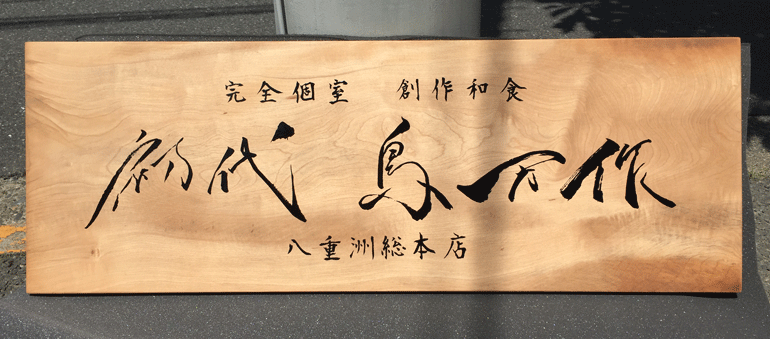 完全個室 創作和食
初代 鳥万作
八重洲総本店